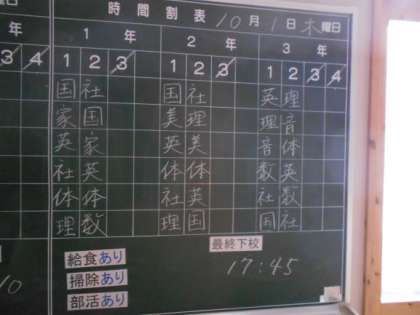 時間割表 10月1日木曜日
年 1年 2年 3年
3 4 1 2 3 1 2 3 1 2 3 4
国 社 国 社 英 理
家 国 美 理 理 音
英 家 英 美 音 体
社 英 体 体 数 英
体 体 社 英 社 数
理 数 理 国 国 社
給食あり
掃除あり
部活あり
最終下校
17:45
10